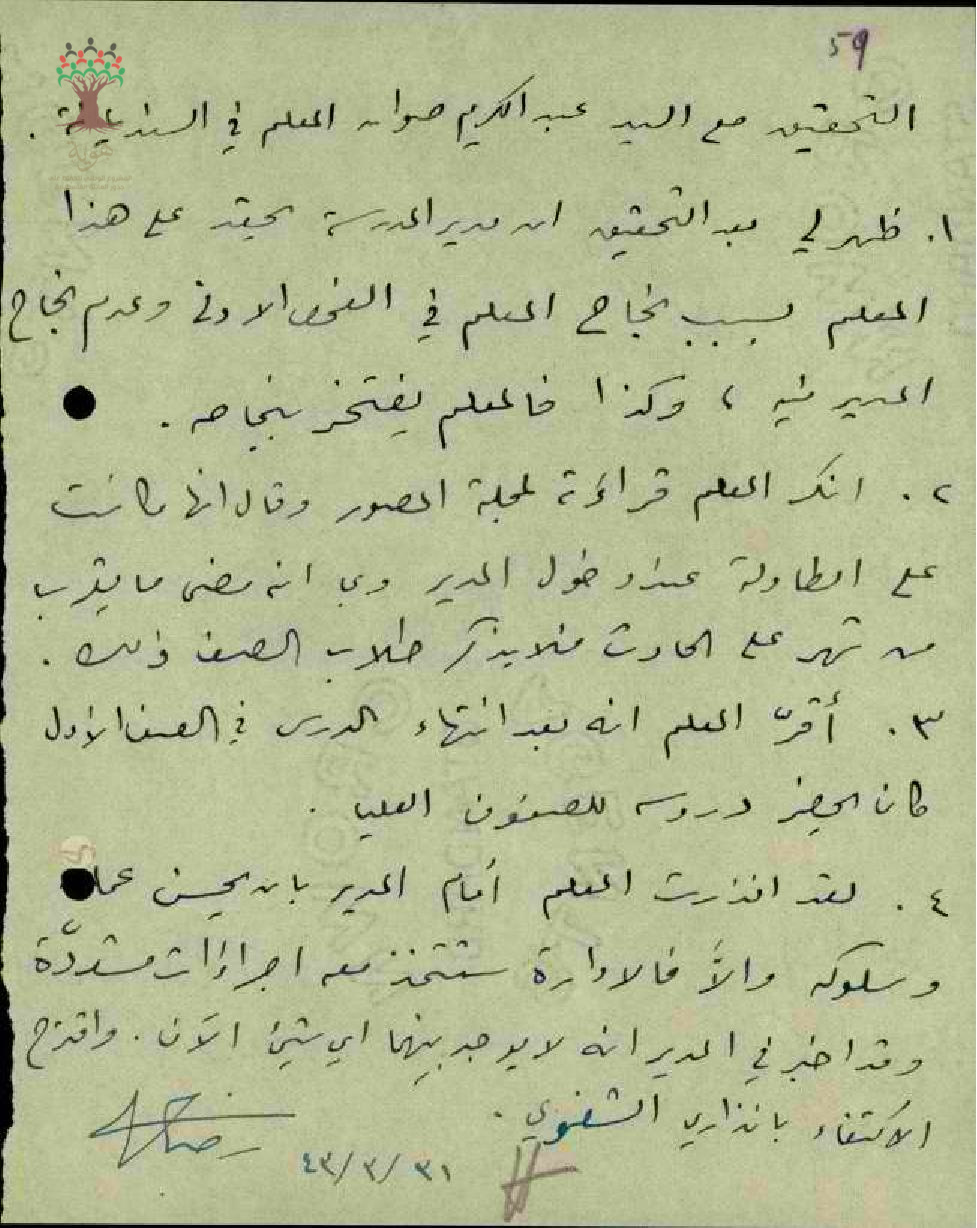 59
التحقيق مع السيد عبد الكريم صوان المعلم في السنديانة .
١. ظهر لي بعد التحقيق ان مدير المدرسة يحقد على هذا
المعلم بسبب نجاح المعلم في الفحص الادنى وعدم نجاح
المدير فيه ، وكذا فالمعلم يفتخر بنجاحه .
٢. انكر المعلم قراءة لمجلة المصور وقال انها كانت
على الطاولة عند دخول المدير وبما انه مضى ما يقرب
من شهر على الحادث فلا يذكر طلاب الصف ذلك .
٣. أقرّ المعلم انه بعد انتهاء الدرس في الصف الاول
كان يحضر دروسه للصفوف العليا .
٤. لقد انذرت المعلم أمام المدير بان يحسن عمله
وسلوكه والاّ فالادارة ستتخذ معه اجراءات مشددّة
وقد اخبرني المدير انه لا يوجد بينهما اي شيئ الآن . واقترح
الاكتفاء بانذاري الشفوي .
٤٣/٣/٣١